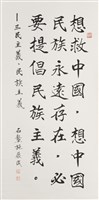 想救中國，想中國
民族永遠存在，必
要提倡民族主義。
─三民主義．民族主義